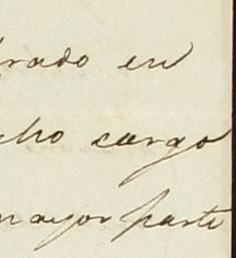 rado en
cho cargo
mayor parte